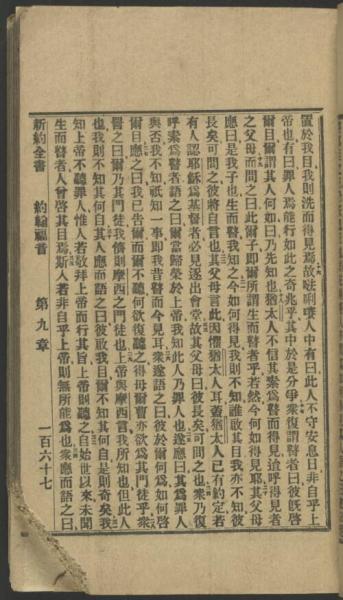 置於我目、我則洗而得見焉、故𠵽唎㘔人中有曰、此人不守安息日、非自乎上
帝也、有曰、罪人焉能行如此之奇兆乎、其中於是分爭、衆復謂瞽者曰、彼旣啓
爾目、爾謂其人何如、曰、乃先知也、猶太人不信其素爲瞽而得見、迨呼得見者
之父母而問之曰、此爾子、卽爾所謂生而瞽者乎、若然、今何如得見耶、其父母
應曰、是我子也、生而瞽、我知之、今如何得見、我則不知、誰啟其目、我亦不知、彼
長矣、可問之、彼將自言也、其父母言此、因懼猶太人耳、蓋猶太人已有約定、若
有人認耶穌爲基督者、必見逐出會堂、故其父母曰、彼長矣、可問之也、衆乃復
呼素爲瞽者、語之曰、爾當歸榮於上帝、我知此人乃罪人也、遂應曰、其爲罪人
與否、我不知、祇知一事、卽我昔瞽而今見耳、衆遂語之曰、彼於爾何爲、如何啓
爾目、應之曰、我已告爾、而爾不聽、何欲復聽之、得毋爾曹亦欲爲其門徒乎、衆
詈之曰、爾乃其門徒、我儕則摩西之門徒也、上帝與摩西言、我所知也、但此人
也、我則不知其何自、其人應而語之曰、彼啟我目、爾不知其何自、是則奇矣、我
知上帝不聽罪人、惟人若敬拜上帝、而行其旨、上帝則聽之、自始世以來、未聞
生而瞽者、人曾啓其目焉、斯人若非自乎上帝、則無所能爲也、衆應而語之曰、
新約全書 約翰福音 第九章 一百六十七